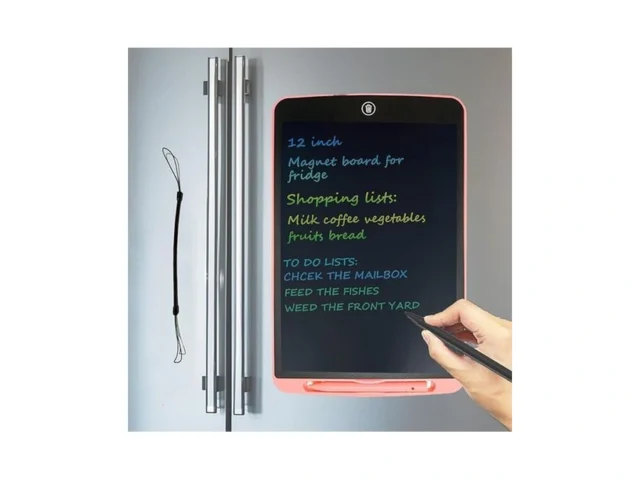 12 inch
Magnet board for
fridge
Shopping lists:
Milk coffee vegetables
fruits bread
TO DO LISTS:
CHCEK THE MAILBOX
FEED THE FISHES
WEED THE FRONT YARD